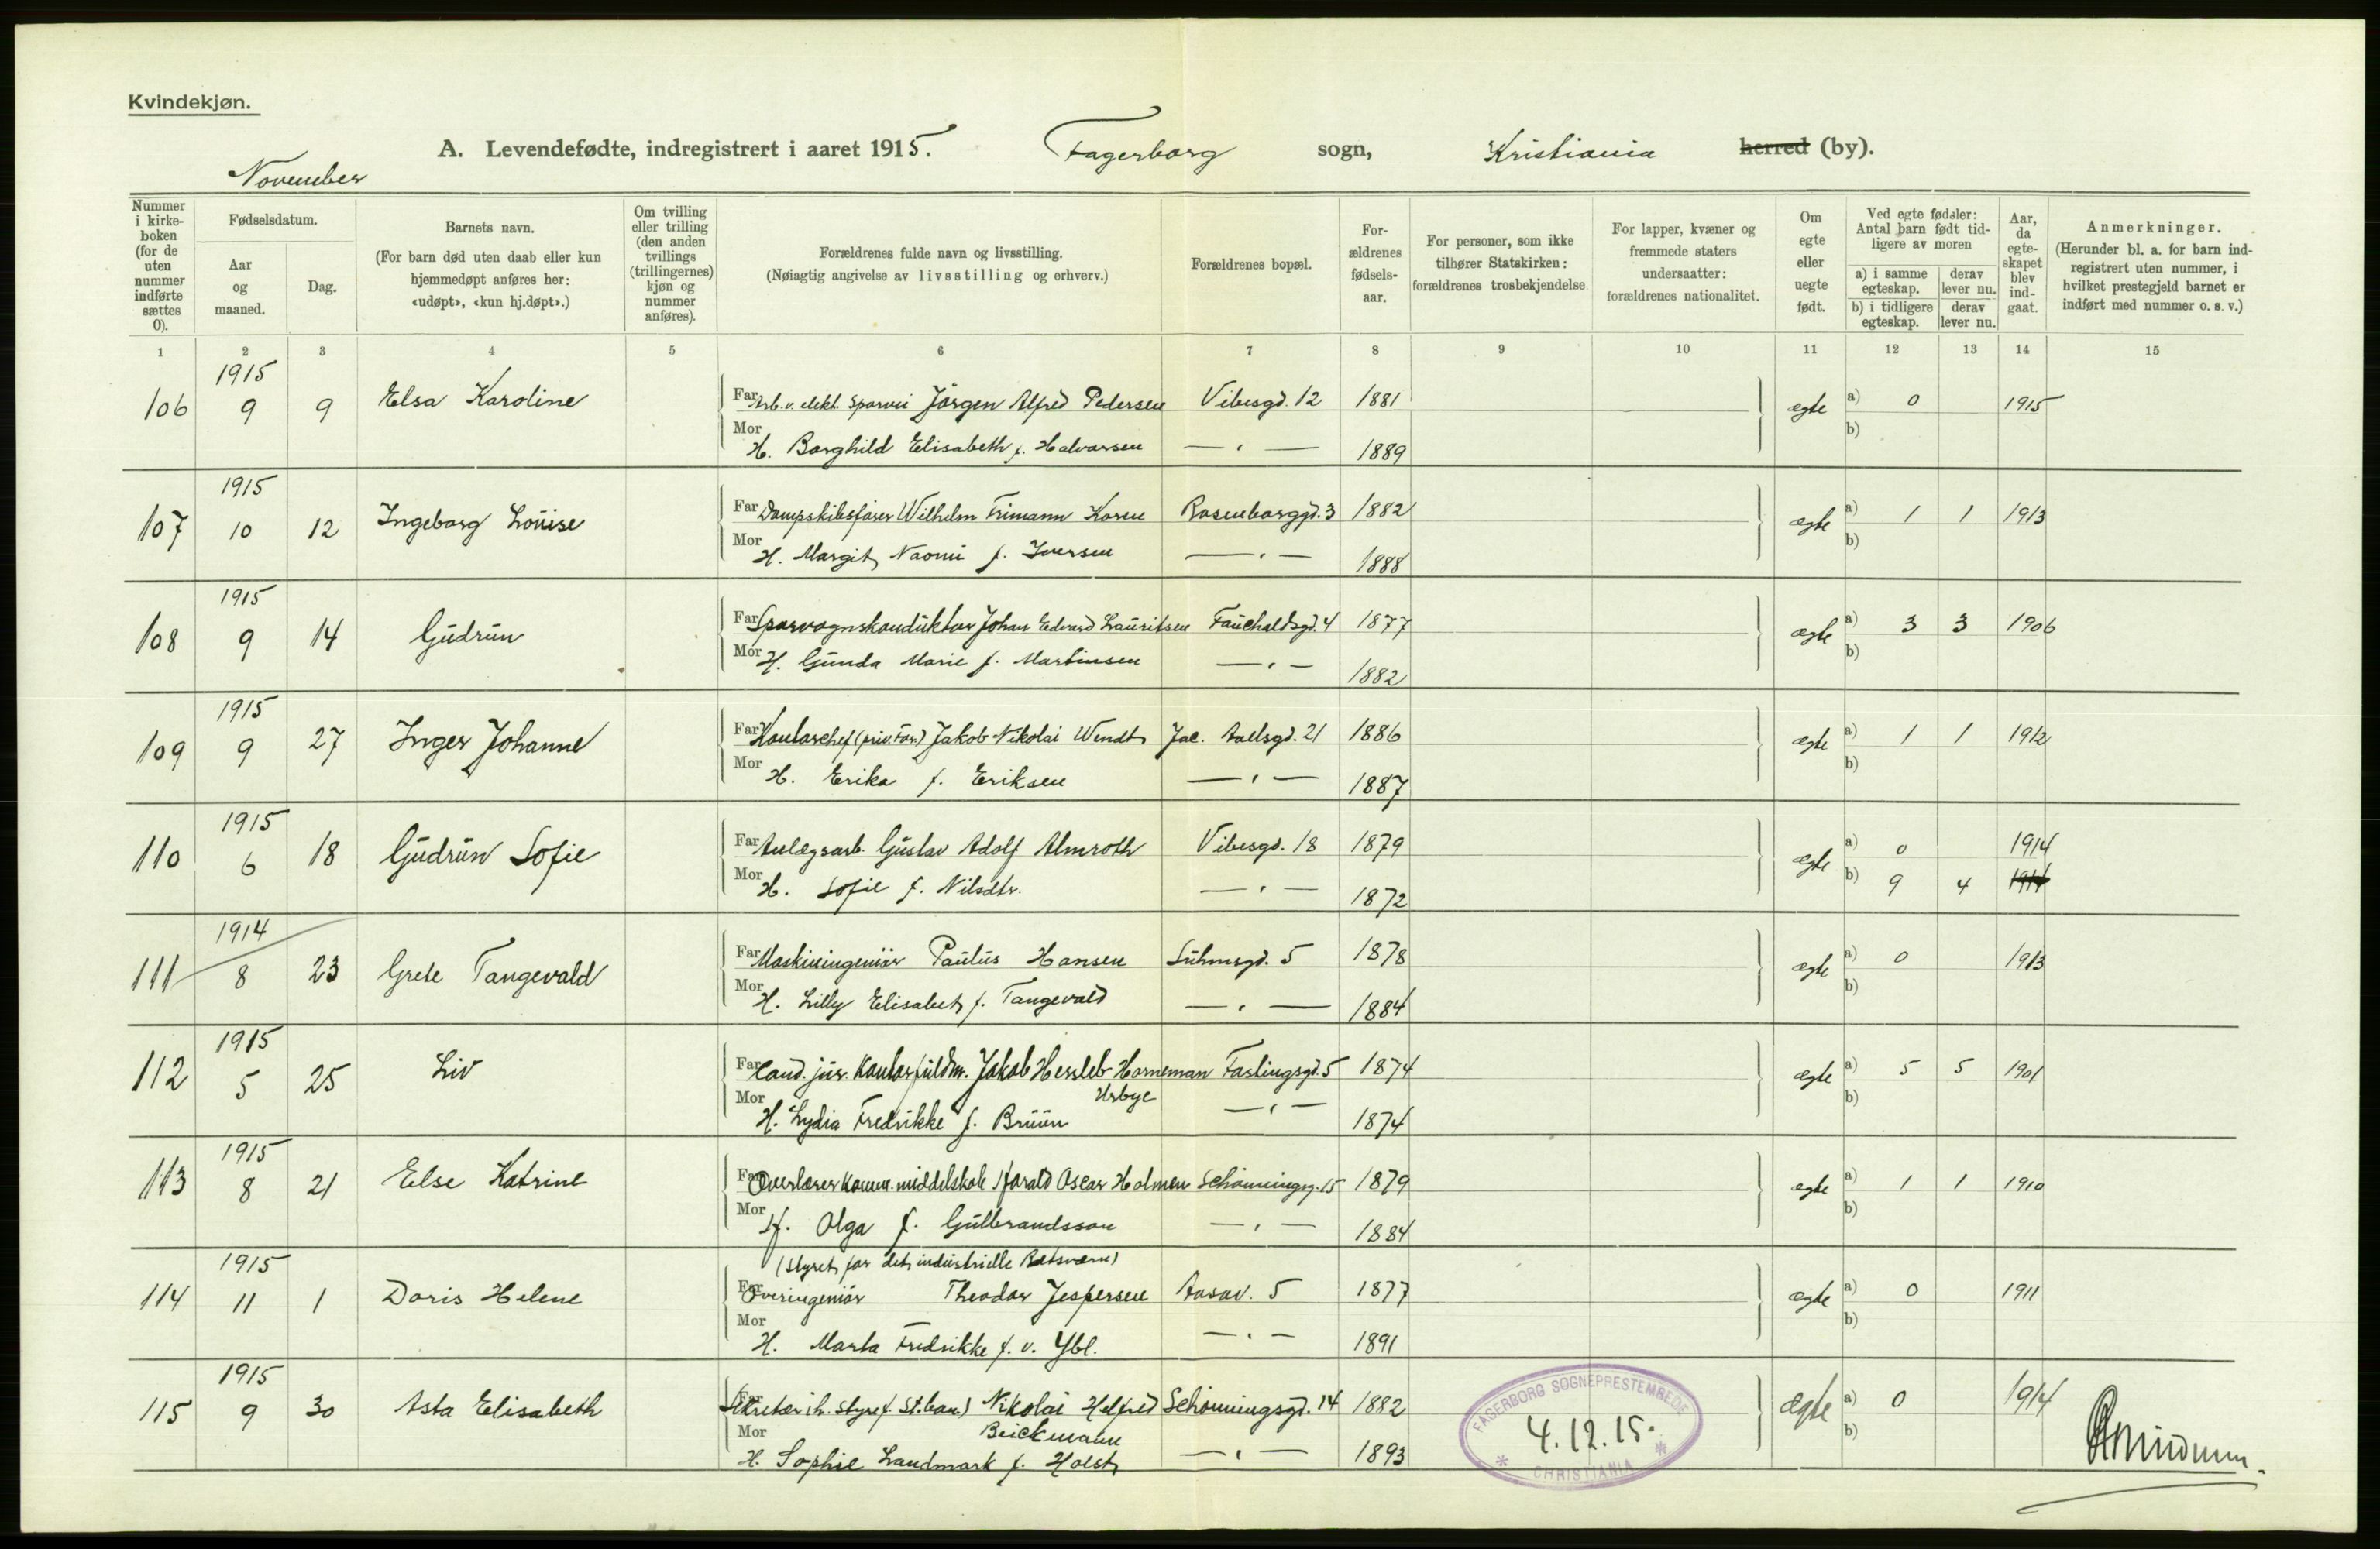 Kvindekjøn.
A. Levendefødte, indregistrert i aaret 1915. Fagerborg sogn, Kristiania herred (by).
November
Nummer i kirkeboken (for de uten nummer indførte sættes 0).
Fødselsdatum.
Aar og maaned.
Dag.
Barnets navn.
(For barn død uten daab eller kun hjemmedøpt anføres her: «udøpt», «kun hj.døpt».)
Om tvilling eller trilling (den anden tvillings (trillingernes) kjøn og nummer anføres).
Forældrenes fulde navn og livsstilling.
(Nøiagtig angivelse av livsstilling og erhverv.)
Forældrenes bopæl.
Forældrenes fødselsaar.
For personer, som ikke tilhører Statskirken: forældrenes trosbekjendelse
For lapper, kvæner og fremmede staters undersaatter: forældrenes nationalitet.
Om egte eller uegte født.
Ved egte fødsler: Antal barn født tidligere av moren
a) i samme egteskap.
derav lever nu.
b) i tidligere egteskap.
derav lever nu.
Aar, da egteskapet blev indgaat.
Anmerkninger.
(Herunder bl. a. for barn indregistrert uten nummer, i hvilket prestegjeld barnet er indført med nummer o. s. v.)
1 2 3 4 5 6 7 8 9 10 11 12 13 14 15
1915
106 9 9 Elsa Karoline Far Arb. v. elekt. Sporvei Jörgen Alfred Pedersen Vibesgd. 12 1881 ægte a) 0 1915
Mor H. Borghild Elisabeth f. Halvorsen — " — 1889 b)
1915
107 10 12 Ingeborg Louise Far Dampskibsförer Wilhelm Frimann Koren Rosenborggd. 3 1882 ægte a) 1 1 1913
Mor H. Margit Naomi f. Iversen — " — 1888 b)
1915
108 9 14 Gudrun Far Sporvognskonduktör Johan Edvard Lauritsen Fauchaldsgd. 4 1877 ægte a) 3 3 1906
Mor H. Gunda Marie f. Martinsen — " — 1882 b)
1915
109 9 27 Inger Johanne Far Kontorchef (priv. for.) Jakob Nikolai Wendt Jac. Aallsgd. 21 1886 ægte a) 1 1 1912
Mor H. Erika f. Eriksen — " — 1887 b)
1915
110 6 18 Gudrun Sofie Far Anlægsarb. Gustav Adolf Almroth Vibesgd. 18 1879 ægte a) 0 1914
Mor H. Sofie f. Nilsdtr. — " — 1872 b) 9 4 1914
1914
111 8 23 Grete Tangevald Far Maskiningeniör Paulus Hansen Suhmsgd. 5 1878 ægte a) 0 1913
Mor H. Lilly Elisabet f. Tangevald — " — 1884 b)
1915
112 5 25 Liv Far Cand. jur. Kontorfuldm. Jakob Hersleb Horneman Fastingsgd. 5 1874 ægte a) 5 5 1901
Urbye
Mor H. Lydia Fredrikke f. Bruun — " — 1874 b)
1915
113 8 21 Else Katrine Far Overlærer komm. middelskole Harald Oscar Holmen Schönningsg. 15 1879 ægte a) 1 1 1910
Mor H. Olga f. Gulbrandsson — " — 1884 b)
1915 (Styret for det industrielle Retsværn)
114 11 1 Doris Helene Far Overingeniör Theodor Jespersen Aasav. 5 1877 ægte a) 0 1911
Mor H. Marta Fredrikke f. v. Ybl. — " — 1891 b)
1915
115 9 30 Asta Elisabeth Far Sekretær (h. styre f. St.ban.) Nikolai Helfred Schönningsgd. 14 1882 ægte a) 0 1914
Beickmann
Mor H. Sophie Landmark f. Holst — " — 1893 b)
FAGERBORG SOGNEPRESTEMBEDE
4.12.15.
* CHRISTIANIA *